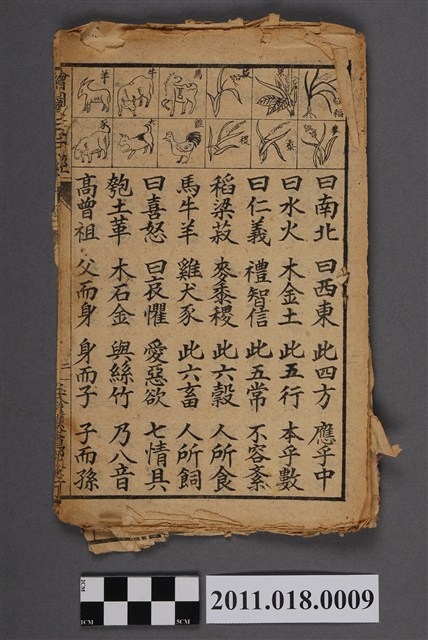 稻
菽
馬
牛
羊
麥
黍
稷
雞
犬
豕
曰南北 曰西東 此四方 應乎中
曰水火 木金土 此五行 本乎數
曰仁義 禮智信 此五常 不容紊
稻梁菽 麥黍稷 此六穀 人所食
馬牛羊 雞犬豕 此六畜 人所飼
曰喜怒 曰哀懼 愛惡欲 七情具
匏土革 木石金 與絲竹 乃八音
髙曾祖 父而身 身而子 子而孫
繪圖三字經
二
1CM
1CM
5CM
2011.018.0009